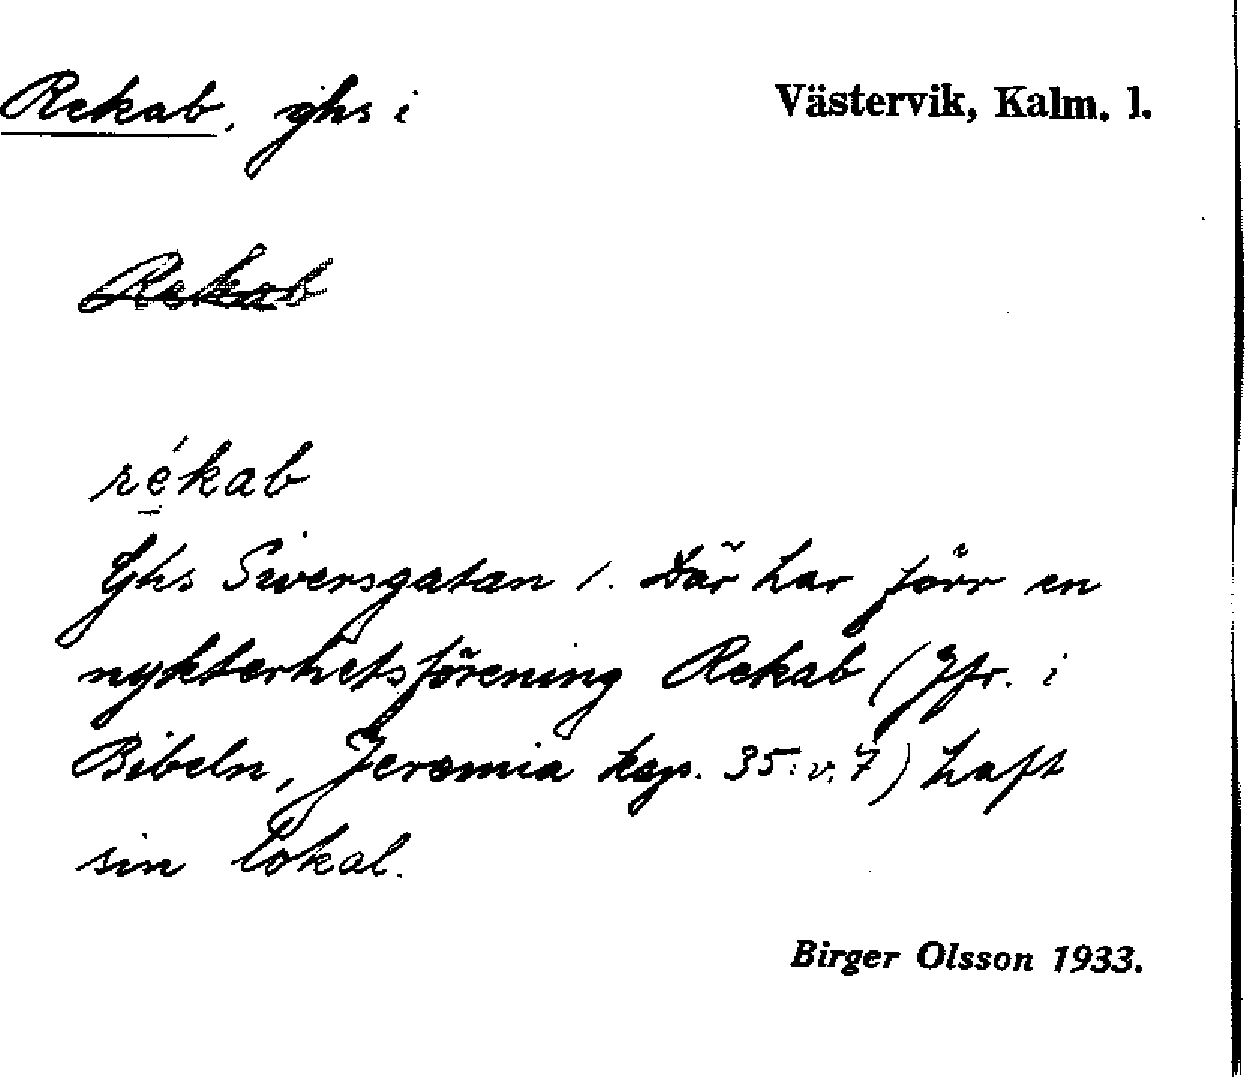 Rekab, ghs i Västervik, Kalm. l.
Rekab
rékab
Ghs Siversgatan 1. Där har förr en
nykterhetsförening Rekab (Jfr. i
Bibeln, Jeremia kap. 35: v. 7) haft
sin lokal.
Birger Olsson 1933.